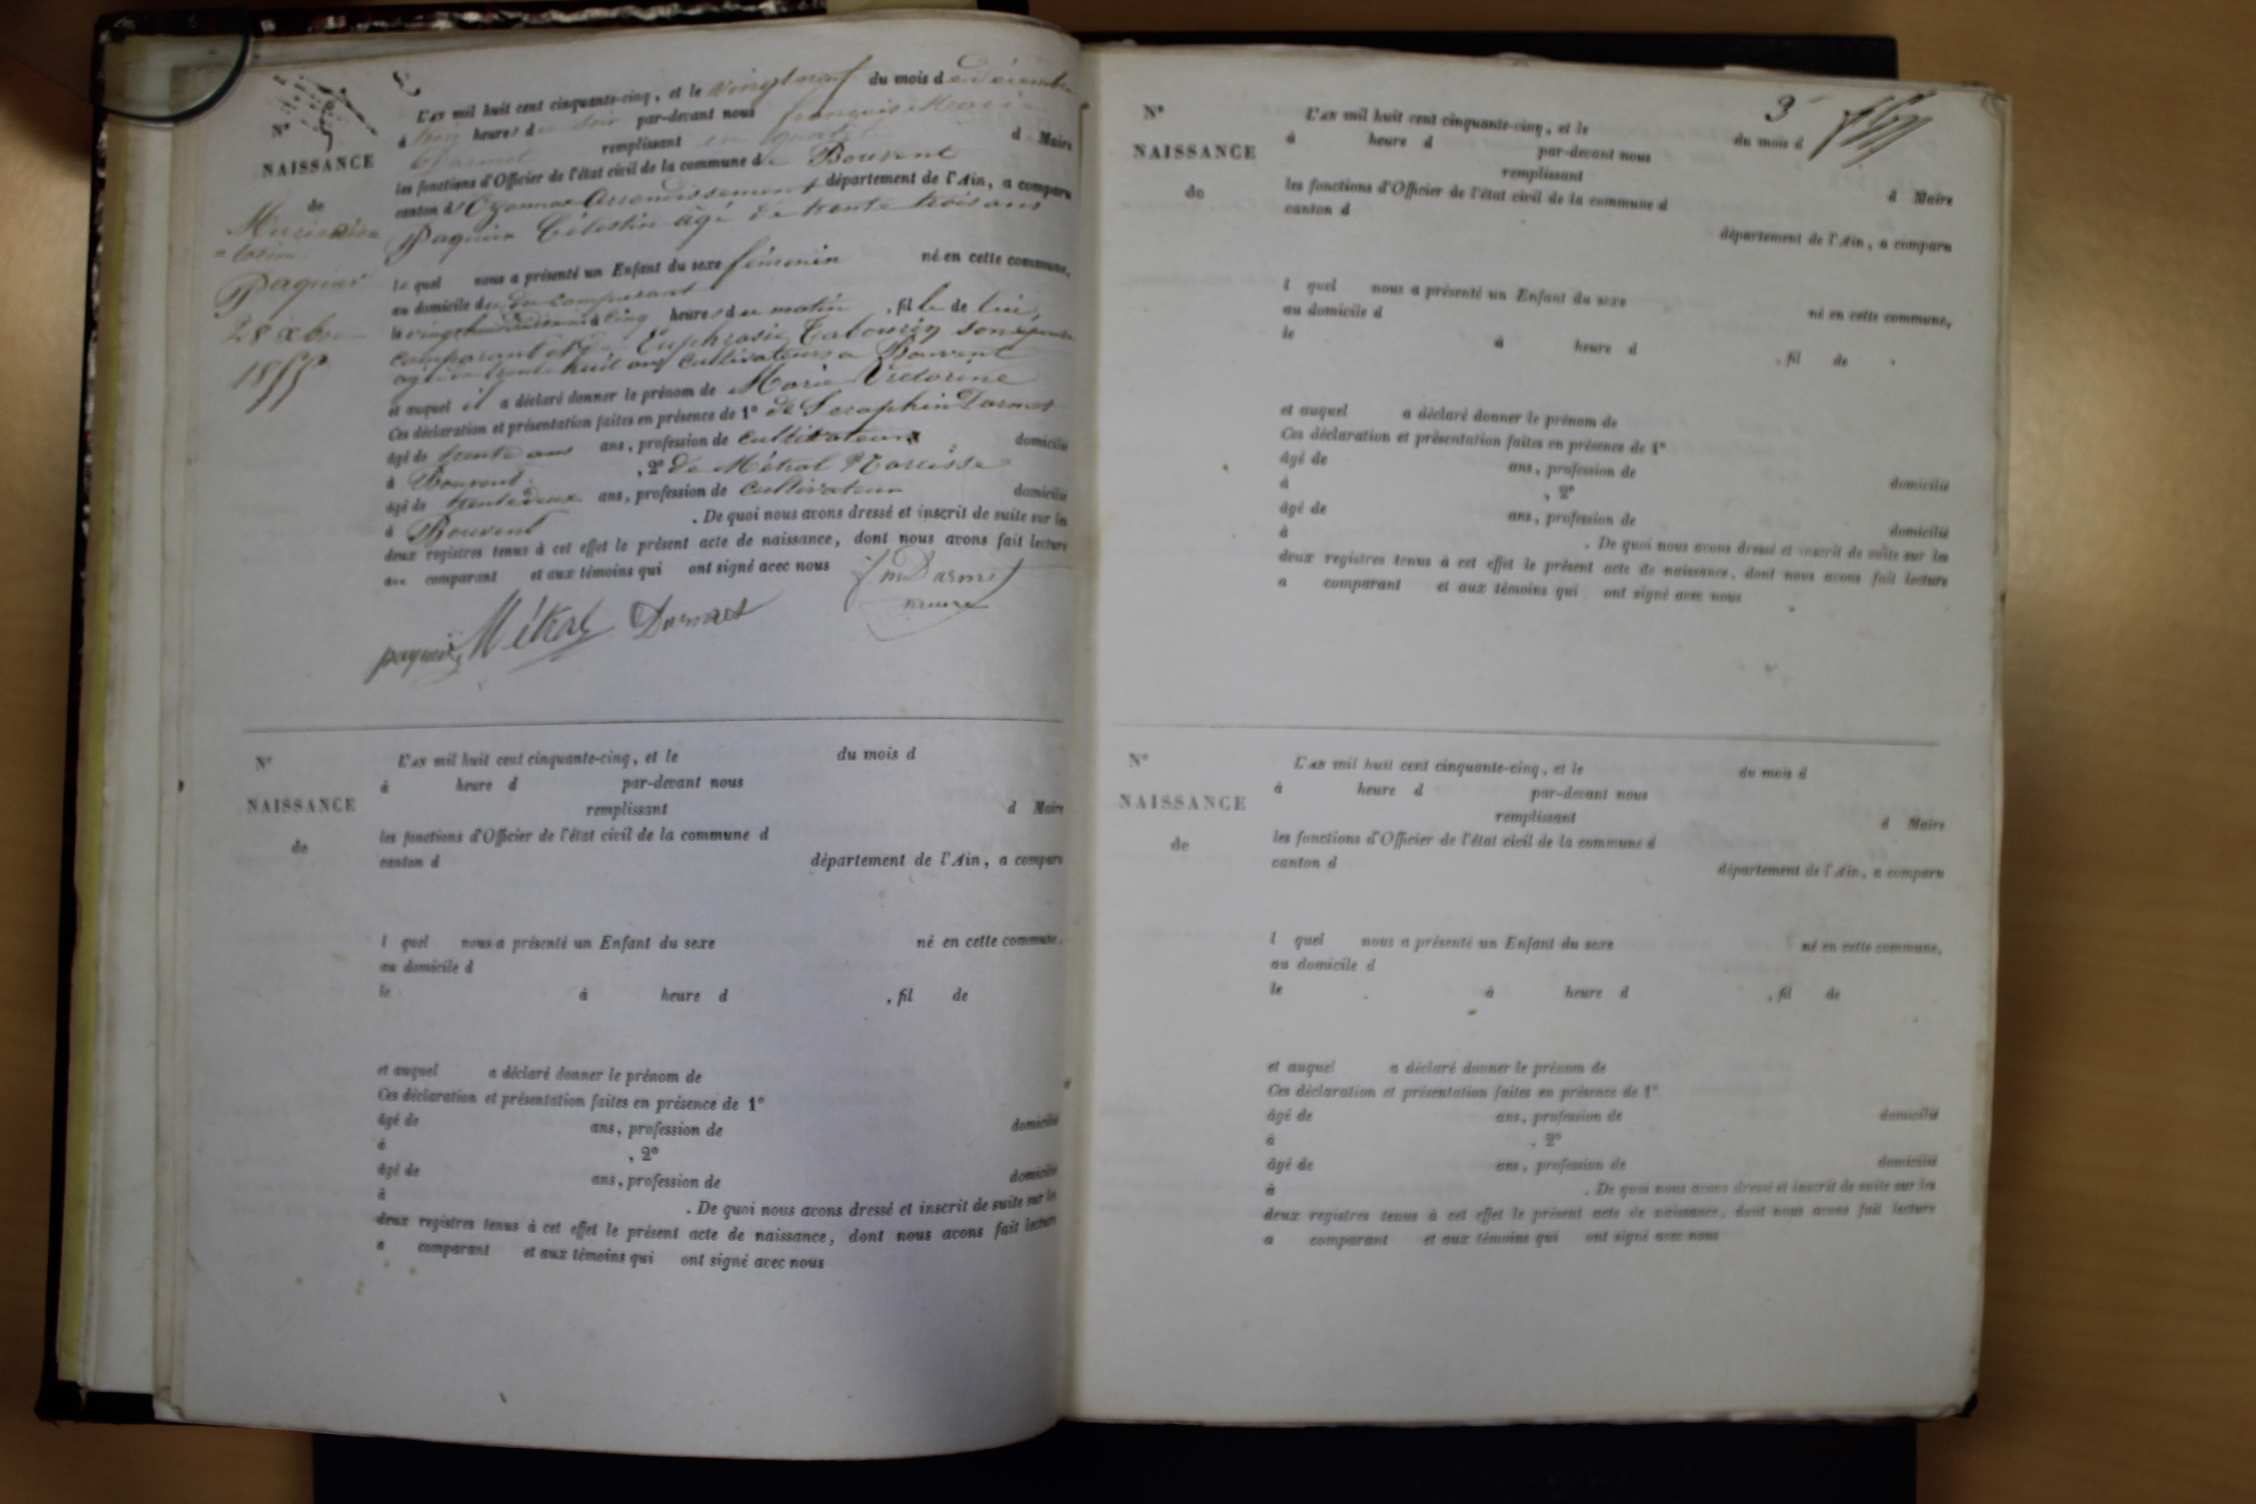 N°
NAISSANCE
de
Marie Vic=
=torine
Paquier
28 xbre
1855
L'AN mil huit cent cinquante-cinq, et le vingt neuf du mois de décembre
à heures du soir par-devant nous françois Marie
Darmet remplissant en qualité d Maire
les fonctions d'Officier de l'état civil de la commune de Bouvent
canton d'Oyonnax Arrondissement département de l'Ain, a comparu
Paquier Célestin âgé de trente trois ans
le quel nous a présenté un Enfant du sexe féminin né en cette commune,
au domicile de du comparant
le vingt huit à cinq heures du matin, fille de lui,
comparant et Euphrosie Tabourin son épouse
âgée trente huit ans cultivateurs a Bouvent
et auquel il a déclaré donner le prénom de Marie Victorine
Ces déclaration et présentation faites en présence de 1° de Seraphin Darmet
âgé de trente ans ans, profession de cultivateur domicilié
à Bouvent, 2° de Métral Narcisse
âgé de trente deux ans, profession de cultivateur domicilié
à Bouvent. De quoi nous avons dressé et inscrit de suite sur les
deux registres tenus à cet effet le présent acte de naissance, dont nous avons fait lecture
au comparant et aux témoins qui ont signé avec nous
fm Darmet
maire
paquier Métral Darmet
N°
NAISSANCE
de
L'AN mil huit cent cinquante-cinq, et le du mois d
à heure d par-devant nous
remplissant d Maire
les fonctions d'Officier de l'état civil de la commune d
canton d département de l'Ain, a comparu
l quel nous a présenté un Enfant du sexe né en cette commune,
au domicile d
le à heure d , fil de
et auquel a déclaré donner le prénom de
Ces déclaration et présentation faites en présence de 1°
âgé de ans, profession de domicilié
à , 2°
âgé de ans, profession de domicilié
à . De quoi nous avons dressé et inscrit de suite sur les
deux registres tenus à cet effet le présent acte de naissance, dont nous avons fait lecture
a comparant et aux témoins qui ont signé avec nous
3
N°
NAISSANCE
de
L'AN mil huit cent cinquante-cinq, et le du mois d
à heure d par-devant nous
remplissant d Maire
les fonctions d'Officier de l'état civil de la commune d
canton d département de l'Ain, a comparu
l quel nous a présenté un Enfant du sexe né en cette commune,
au domicile d
le à heure d , fil de
et auquel a déclaré donner le prénom de
Ces déclaration et présentation faites en présence de 1°
âgé de ans, profession de domicilié
à , 2°
âgé de ans, profession de domicilié
à . De quoi nous avons dressé et inscrit de suite sur les
deux registres tenus à cet effet le présent acte de naissance, dont nous avons fait lecture
a comparant et aux témoins qui ont signé avec nous
N°
NAISSANCE
de
L'AN mil huit cent cinquante-cinq, et le du mois d
à heure d par-devant nous
remplissant d Maire
les fonctions d'Officier de l'état civil de la commune d
canton d département de l'Ain, a comparu
l quel nous a présenté un Enfant du sexe né en cette commune,
au domicile d
le à heure d , fil de
et auquel a déclaré donner le prénom de
Ces déclaration et présentation faites en présence de 1°
âgé de ans, profession de domicilié
à , 2°
âgé de ans, profession de domicilié
à . De quoi nous avons dressé et inscrit de suite sur les
deux registres tenus à cet effet le présent acte de naissance, dont nous avons fait lecture
a comparant et aux témoins qui ont signé avec nous